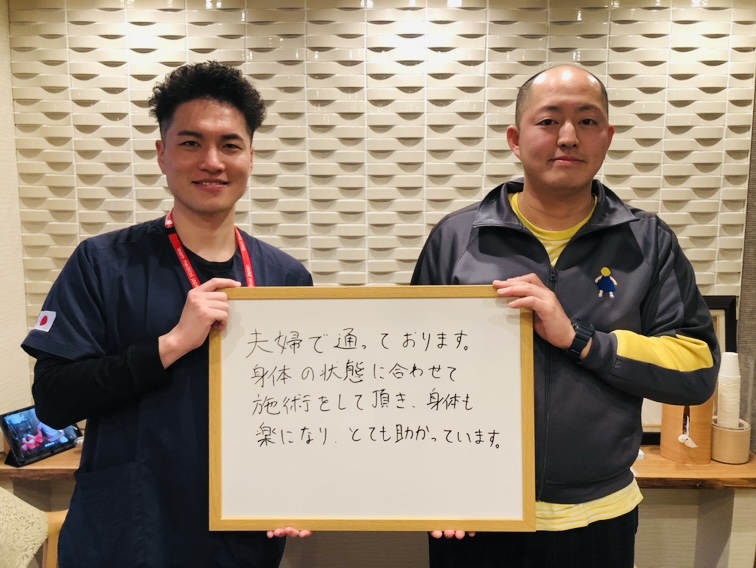 夫婦で通っております。
身体の状態に合わせて
施術をして頂き、身体も
楽になり、とても助かっています。